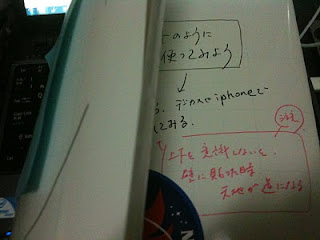 のように
使ってみよう
iphoneで
てみる.
注
上下を意識しないと、
壁に貼った時
天地が逆になる